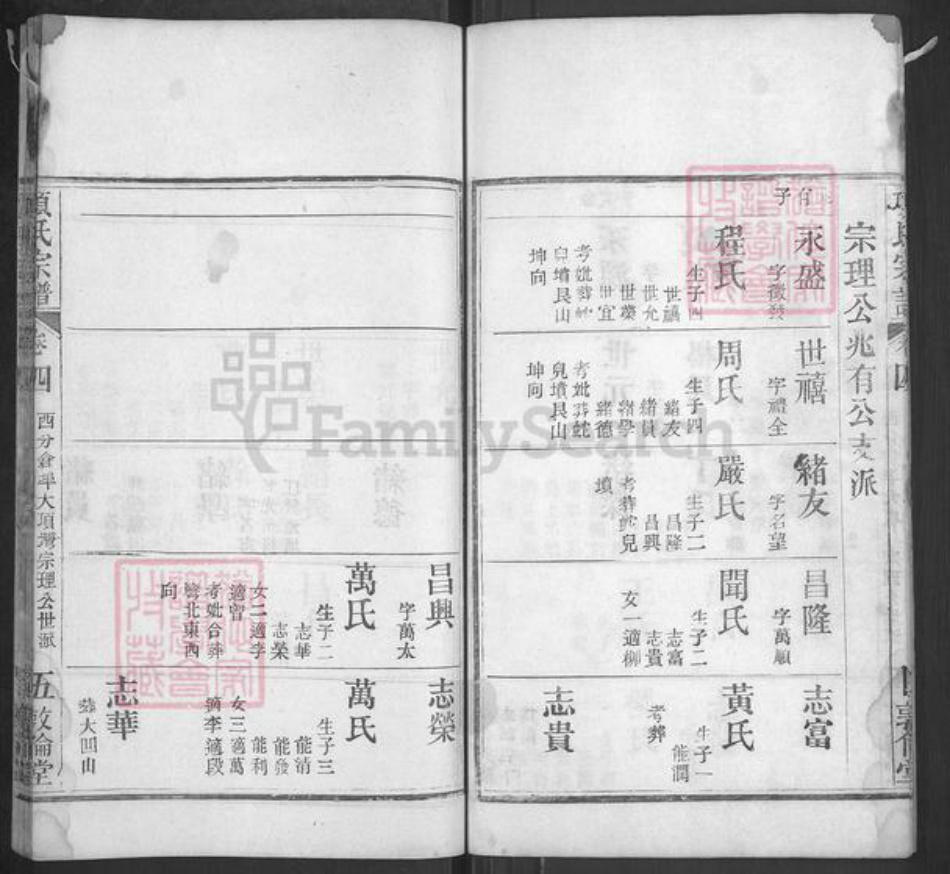 宗理公兆有公支派
子
永盛
字徵發
程氏
生子四
世禧
世允
世榮
世宜
考妣葬蛇
兒墳艮山
坤向
世禧
字禮全
周氏
生子四
緒友
緒員
緒學
緒德
考妣葬蛇
兒墳艮山
坤向
緒友
字名望
嚴氏
生子二
昌隆
昌興
考葬蛇兒
墳
昌隆
字萬順
聞氏
生子二
志富
志貴
女一適柳
志富
黃氏
生子一
能潤
考葬
志貴
昌興
字萬太
萬氏
生子二
志華
志榮
女二適李
適曾
考妣合葬
北東西
向
志榮
萬氏
生子三
能清
能發
能利
女三適萬
適李適段
志華
葬大凹山
項氏宗譜
卷四
西分倉大項灣宗理公世派
五敦倫堂
FamilySearch